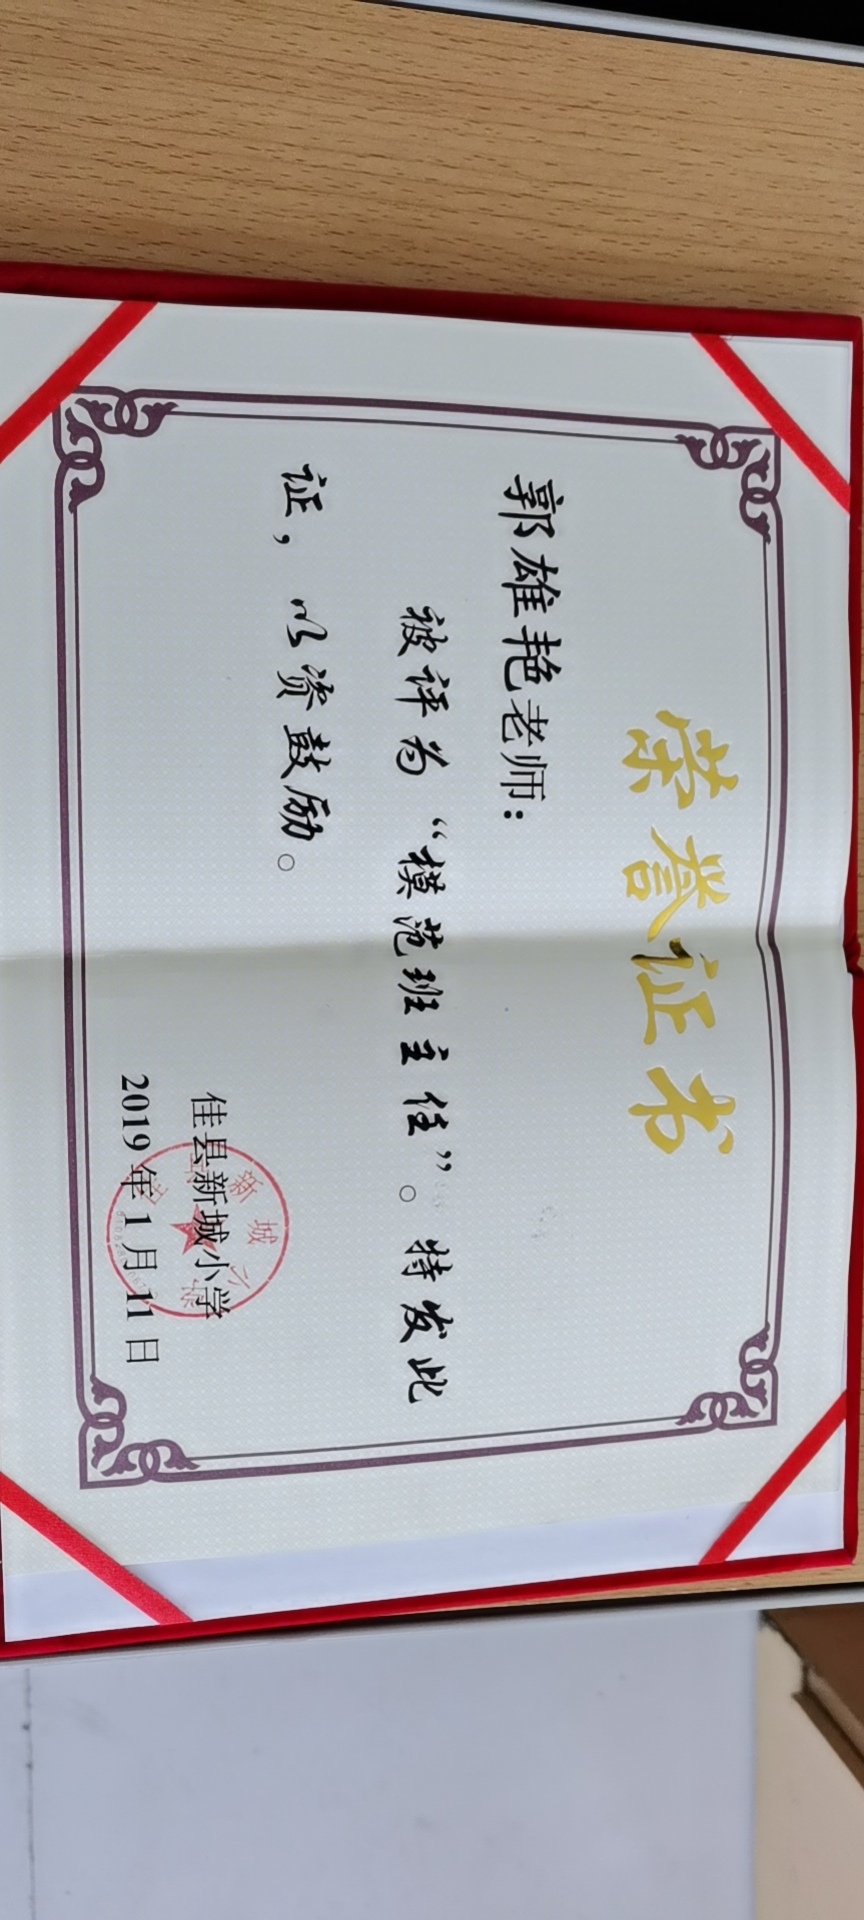 荣誉证书
郭雄艳老师：
被评为“模范班主任”。特发此
证，以资鼓励。
佳县新城小学
2019年1月11日